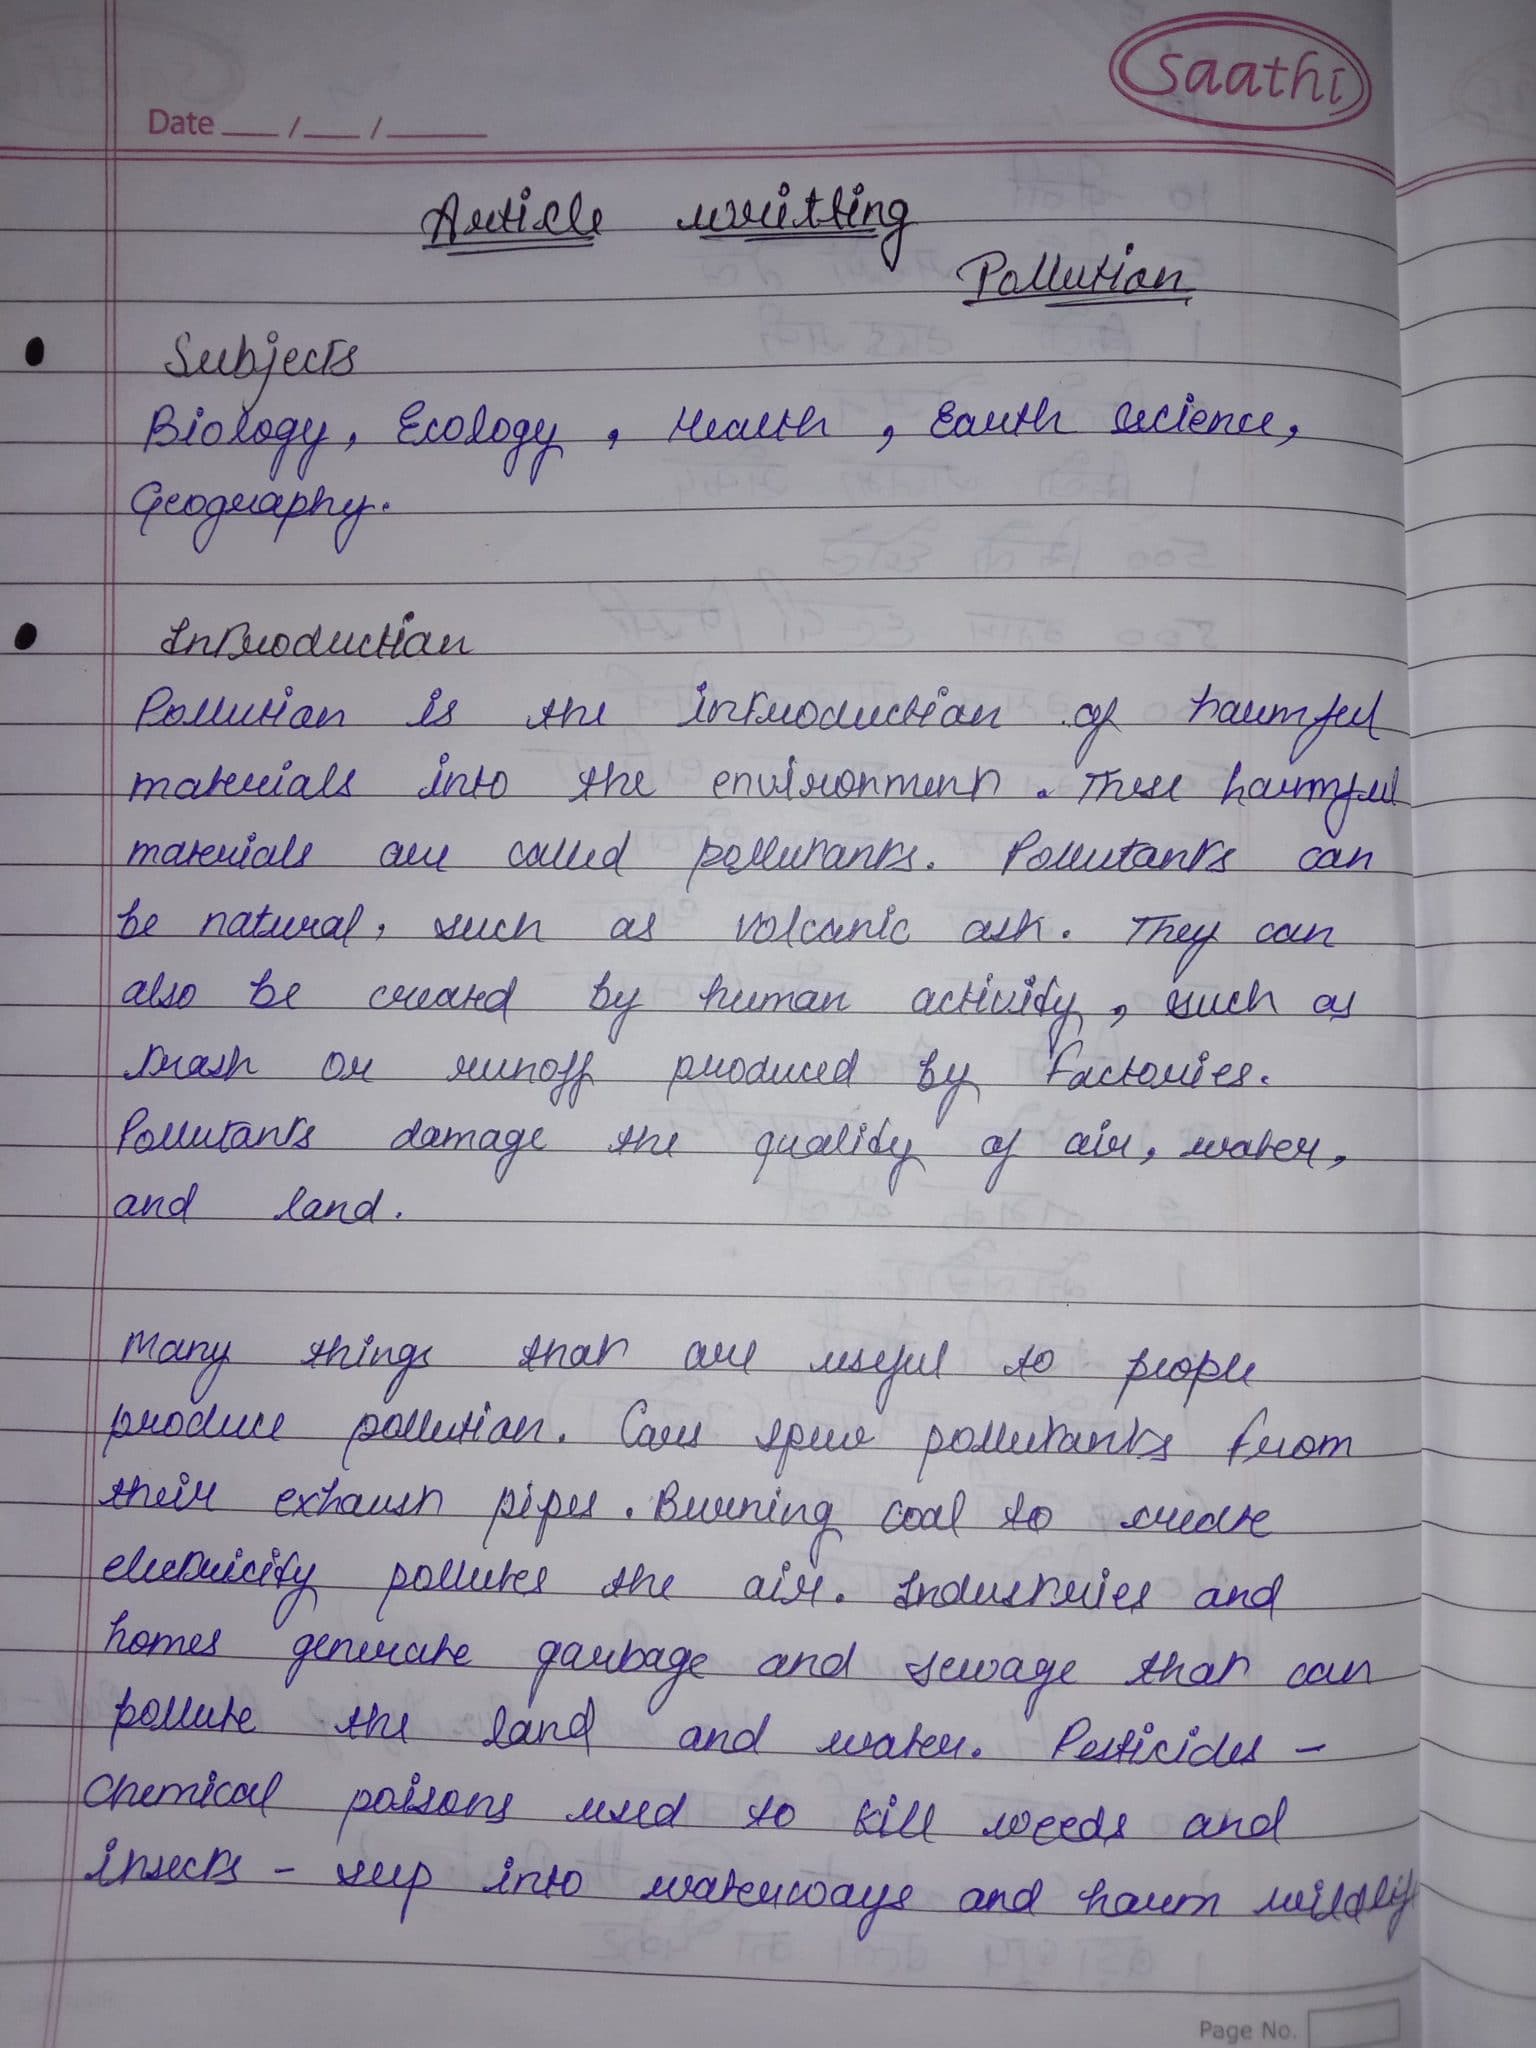 saathi
Date __/__/____
Article writting
Pollution
Subjects
Biology, Ecology, Health, Earth Science,
Geography.
Introduction
Pollution is the introduction of harmful
materials into the environment. These harmful
materials are called pollutants. Pollutants can
be natural, such as volcanic ash. They can
also be created by human activity, such as
trash or runoff produced by factories.
Pollutants damage the quality of air, water,
and land.
Many things that are useful to people
produce pollution. Cars spew pollutants from
their exhaust pipes. Burning coal to create
electricity pollutes the air. Industries and
homes generate garbage and sewage that can
pollute the land and water. Pesticides -
chemical poisons used to kill weeds and
insects - seep into waterways and harm wildlife
Page No.